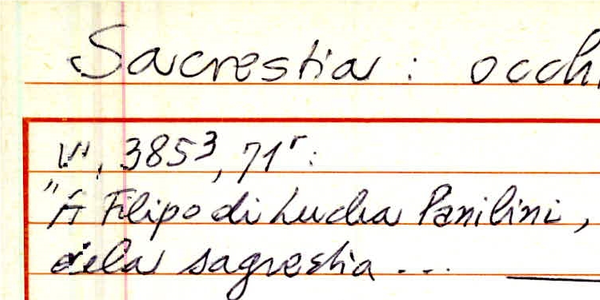 Sacrestia: occhi
W, 3853, 71r:
"A Filipo di Lucha Panilini,
dela sagrestia ...